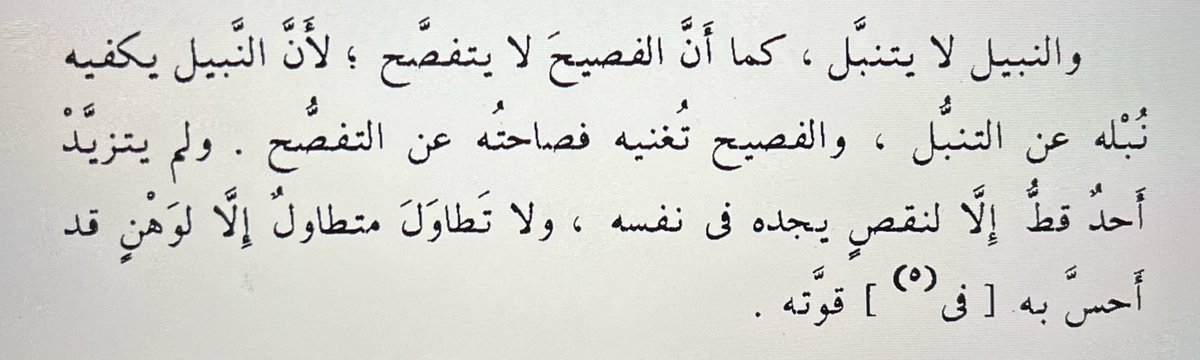 والنبيل لا يتنبَّل ، كما أَنَّ الفصيحَ لا يتفصَّح ؛ لأَنَّ النَّبيل يكفيه
نُبْله عن التنبُّل ، والفصيح تُغنيه فصاحتُه عن التفصُّح . ولم يتزيَّدْ
أَحدٌ قطُّ إِلَّا لنقصٍ يجده فى نفسه ، ولا تَطاوَلَ متطاولٌ إِلَّا لوَهْنٍ قد
أَحسَّ به [ فى(٥) ] قوَّته .